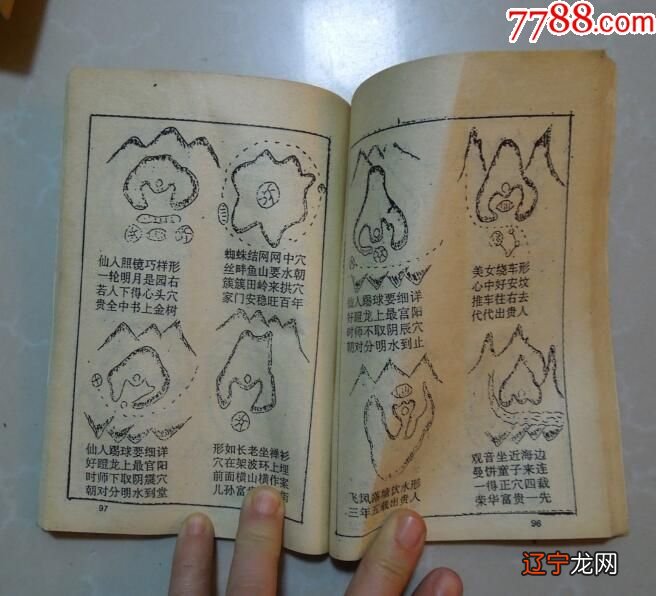 7788.com
仙人照镜巧样形
一轮明月是园右
若人下得心头穴
贵全中书上金树
蜘蛛结网网中穴
丝畔鱼山要水朝
簇簇田岭来拱穴
家门安稳旺百年
仙人踢球要细详
好蹬龙上最官阳
时师下取阴震穴
朝对分明水到堂
形如长老坐禅衫
穴在架波环上埋
前面横山横作案
儿孙富
97
仙人踢球要细详
好蹬龙上最官阳
时师不取阴辰穴
朝对分明水到止
美女绕车形
心中好安坟
推车住右去
代代出贵人
飞凤落塘饮水形
三年五载出贵人
观音坐近海边
曼饼童子来连
一得正穴四裁
荣华富贵一先
96
辽宁龙网